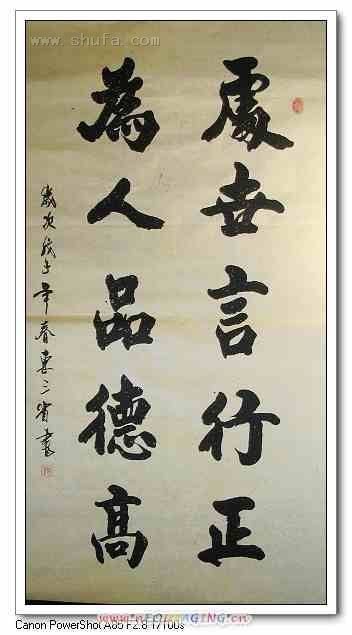 www.shufa.com
處世言行正
為人品德高
歲次戊子年春曹三省書
Canon PowerShot A85 F2.8 1/100s